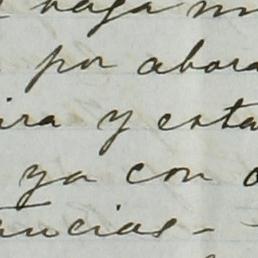 haga
por ahora
ira y esta
ya con
ancias-